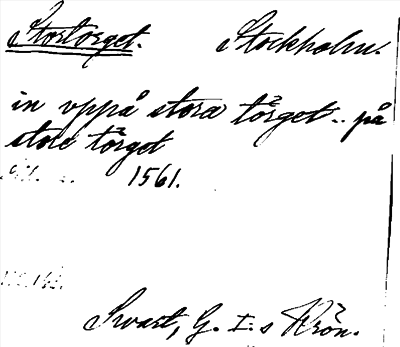 Stortorget. Stockholm.
in vppå stora törget .. på
store törget
1561.
Svart, G. I:s Krön.